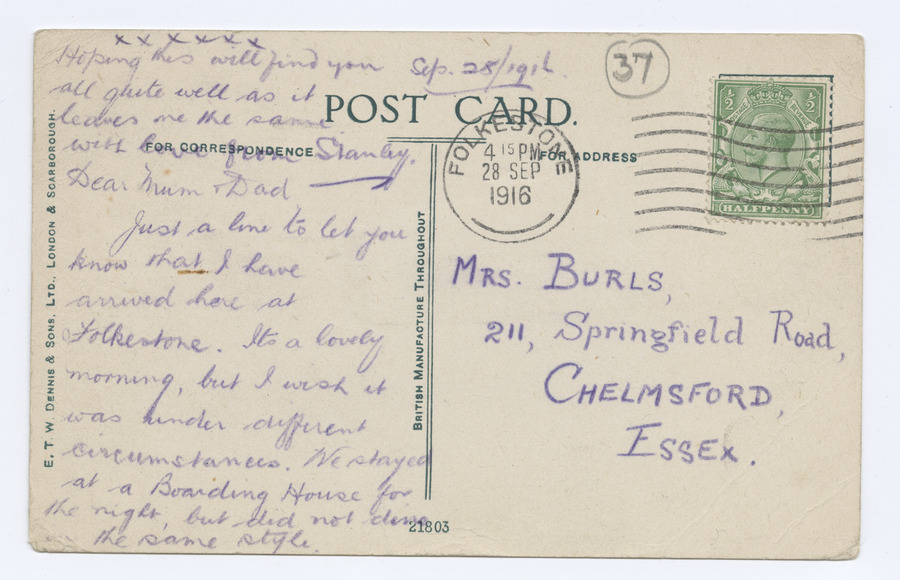 x x x x x x
Hoping this will find you
all quite well as it
leaves me the same
with love from Stanley.
Sep. 28/1916
37
POST CARD.
FOR CORRESPONDENCE
FOR ADDRESS
Dear Mum & Dad
Just a line to let you
know that I have
arrived here at
Folkestone. It's a lovely
morning, but I wish it
was under different
circumstances. We stayed
at a Boarding House for
the night, but did not
the same style.
FOLKESTONE
4 15 PM
28 SEP
1916
½ ½
HALFPENNY
MRS. BURLS,
211, Springfield Road,
CHELMSFORD,
ESSEX.
E. T. W. DENNIS & SONS, LTD., LONDON & SCARBOROUGH.
BRITISH MANUFACTURE THROUGHOUT
21803